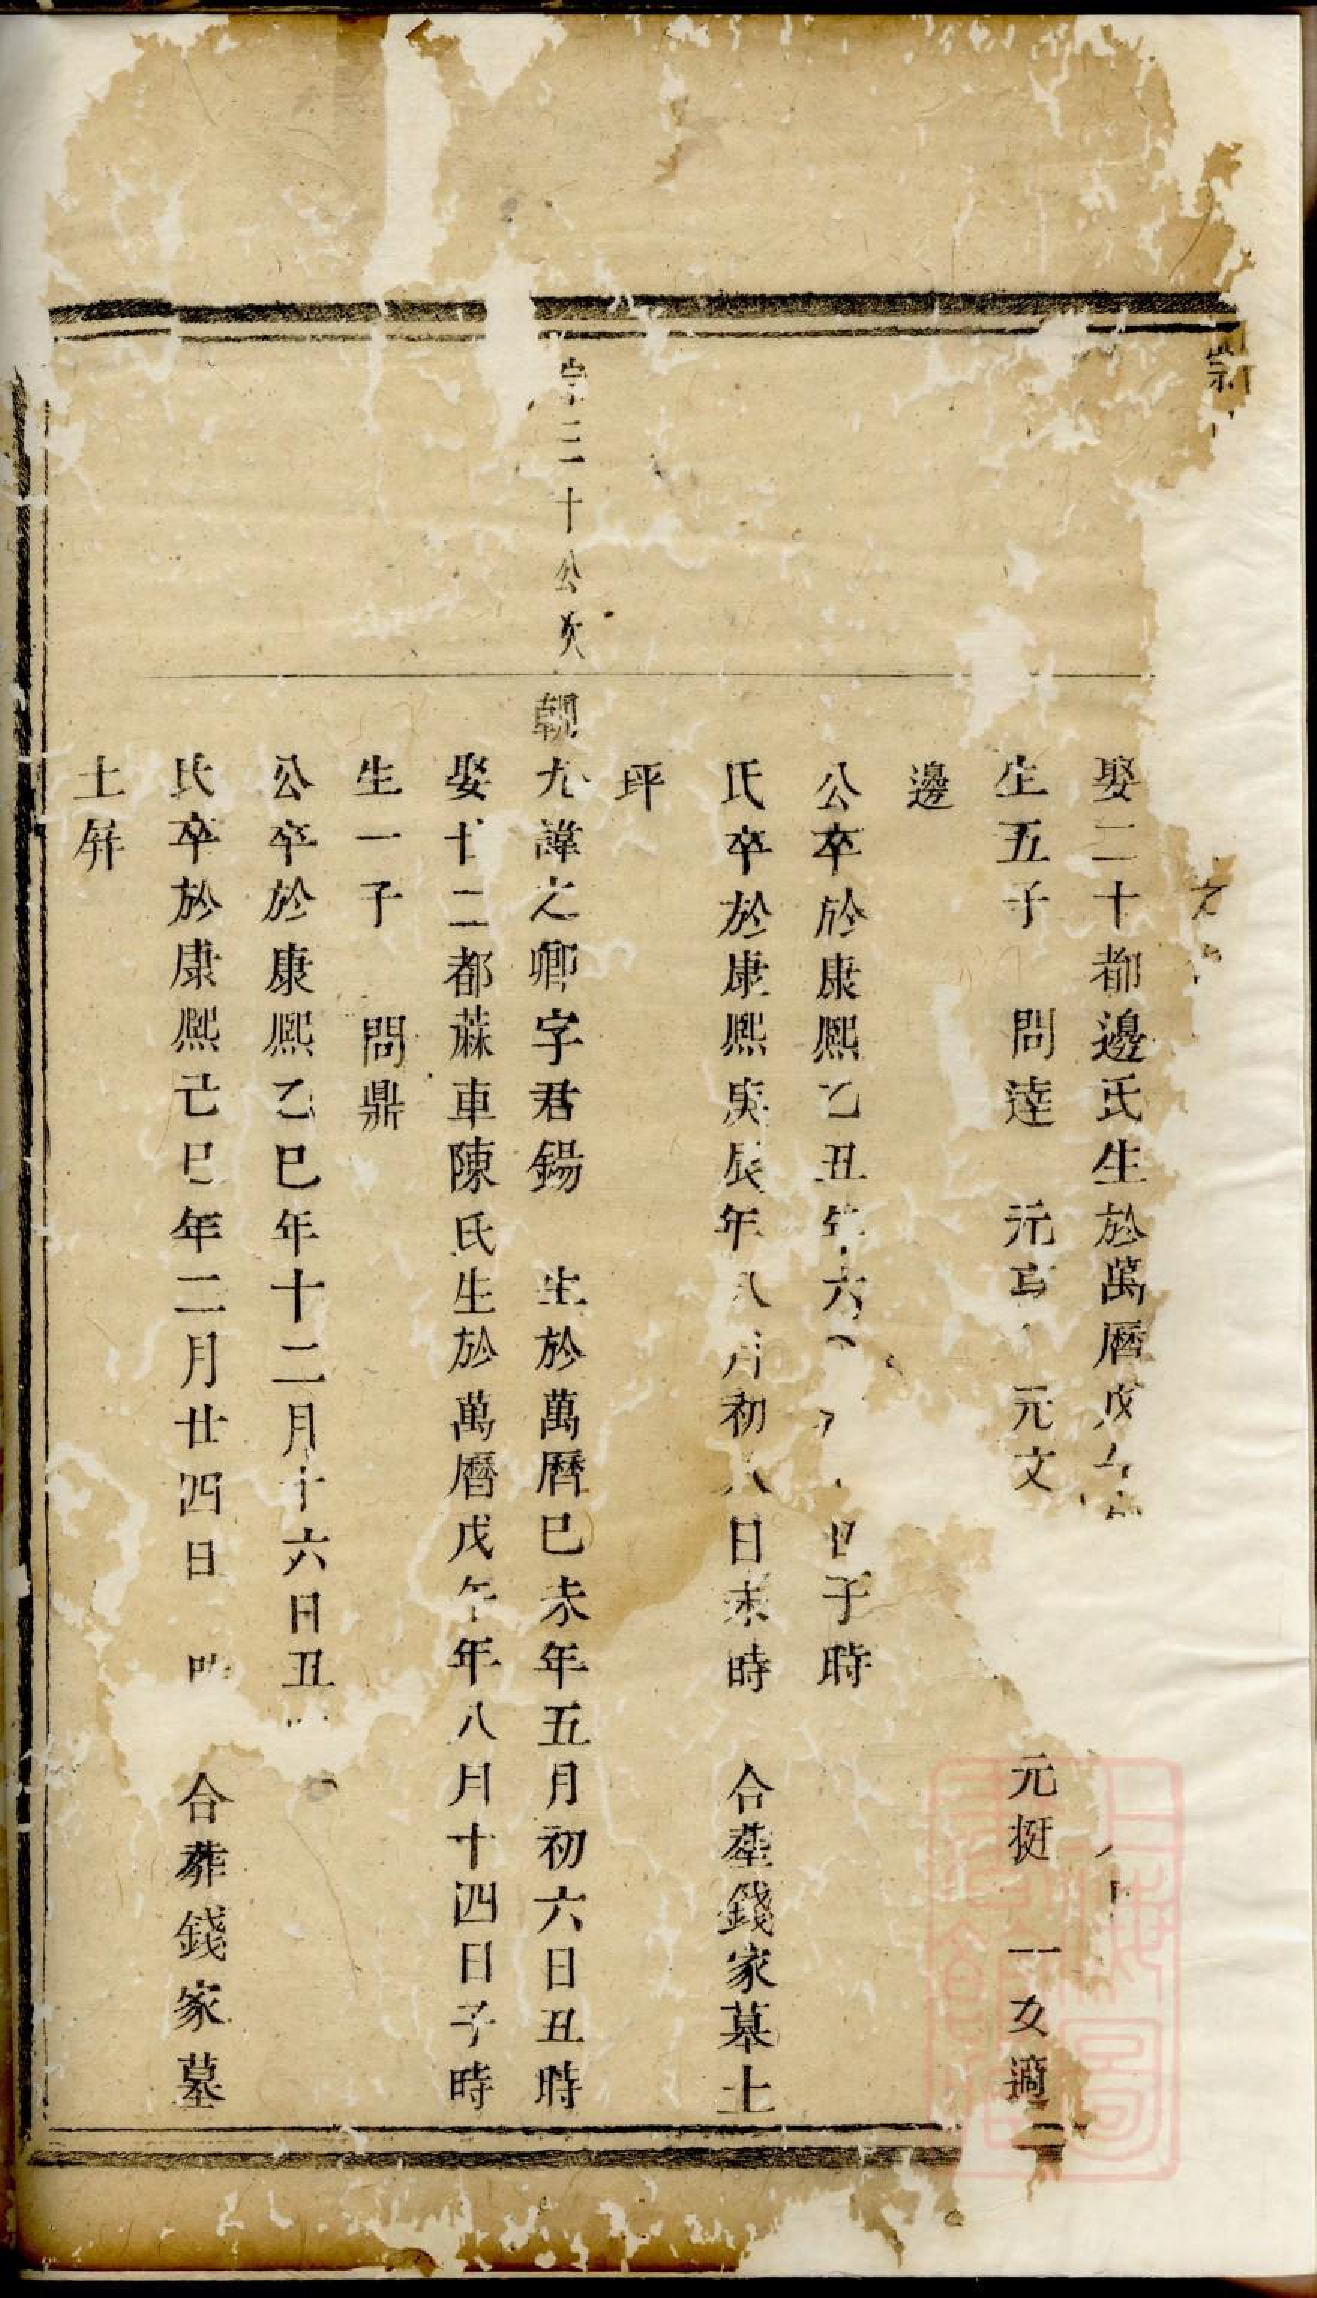 崇
之
娶二十都邊氏生於萬曆戊
生五子　問達　元亨　元文　元挺　一女適
邊
公卒於康熙乙丑年六　日子時
氏卒於康熙庚辰年八月初八日未時　合塟錢家墓土
坪
宇三十公次　觀九諱之卿字君錫　生於萬曆巳未年五月初六日丑時
娶十二都蔴車陳氏生於萬曆戊午年八月十四日子時
生一子　問鼎
公卒於康熙乙巳年十二月十六日丑
氏卒於康熙己巳年二月廿四日　合葬錢家墓
土屏
上海圖書館藏